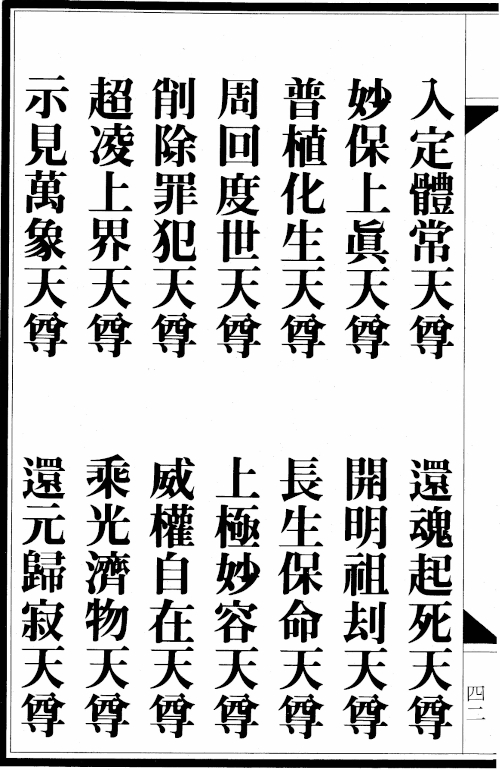 入定體常天尊　還魂起死天尊
妙保上眞天尊　開明祖刦天尊
普植化生天尊　長生保命天尊
周回度世天尊　上極妙容天尊
削除罪犯天尊　威權自在天尊
超凌上界天尊　乘光濟物天尊
示見萬象天尊　還元歸寂天尊
四二